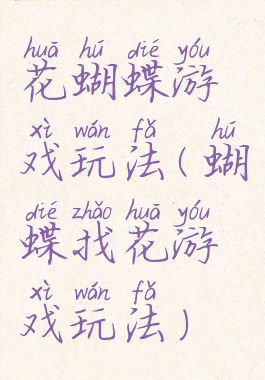 huā hú dié yóu
花蝴蝶游
xì wán fǎ hú
戏玩法(蝴
dié zhǎo huā yóu
蝶找花游
xì wán fǎ
戏玩法)